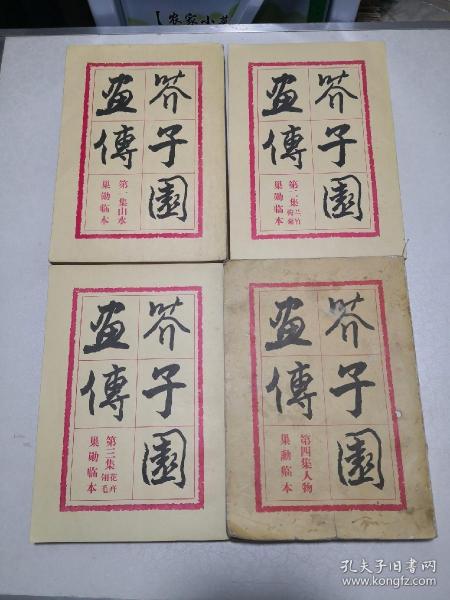 【农家小
芥子園
畫傳
第一集山水
巢勋临本
芥子園
畫傳
第二集兰竹梅菊
巢勋临本
芥子園
畫傳
第三集花卉翎毛
巢勋临本
芥子園
畫傳
第四集人物
巢勳临本
孔夫子旧书网
www.kongfz.com